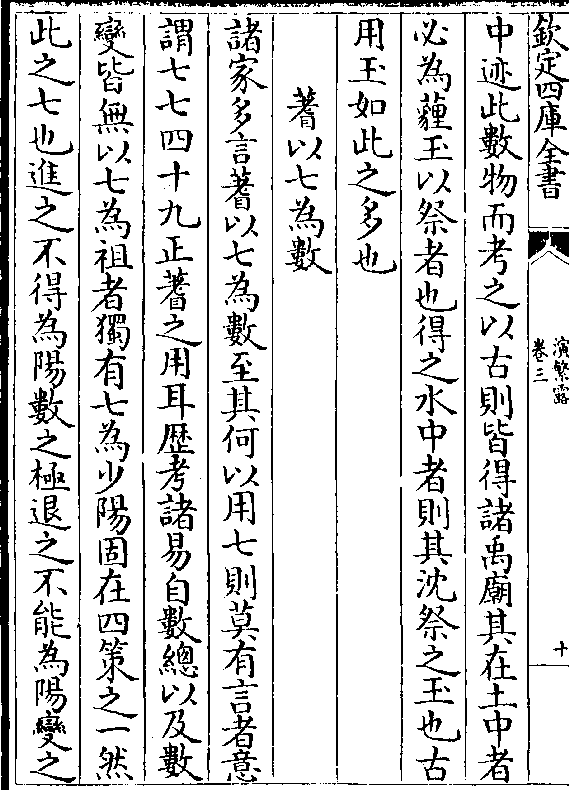 欽定四庫全書
演繁露
卷三
十
中迹此數物而考之以古則皆得諸禹廟其在土中者
必為薶玉以祭者也得之水中者則其沈祭之玉也古
用玉如此之多也
蓍以七為數
諸家多言蓍以七為數至其何以用七則莫有言者意
謂七七四十九正蓍之用耳歴考諸易自數總以及數
變皆無以七為祖者獨有七為少陽固在四策之一然
此之七也進之不得為陽數之極退之不能為陽變之